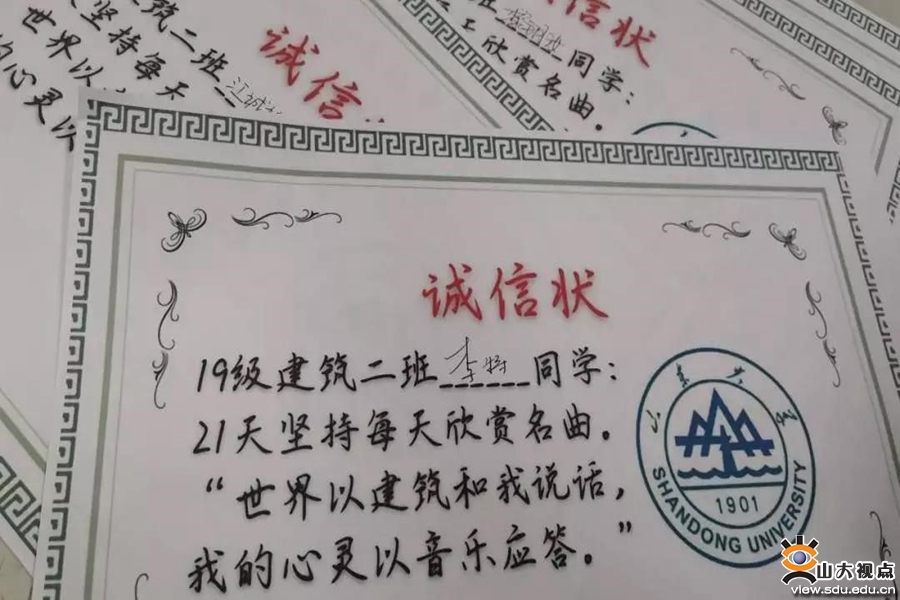 世界以
坚持每天
建筑二班 江
诚信
的心灵以
诚信状
班 同学：
欣赏名曲。
诚信状
19级建筑二班 李特 同学：
21天坚持每天欣赏名曲。
“世界以建筑和我说话，
我的心灵以音乐应答。”
山东大学
1901
SHANDONG UNIVERSITY
山大视点
www.view.sdu.edu.cn